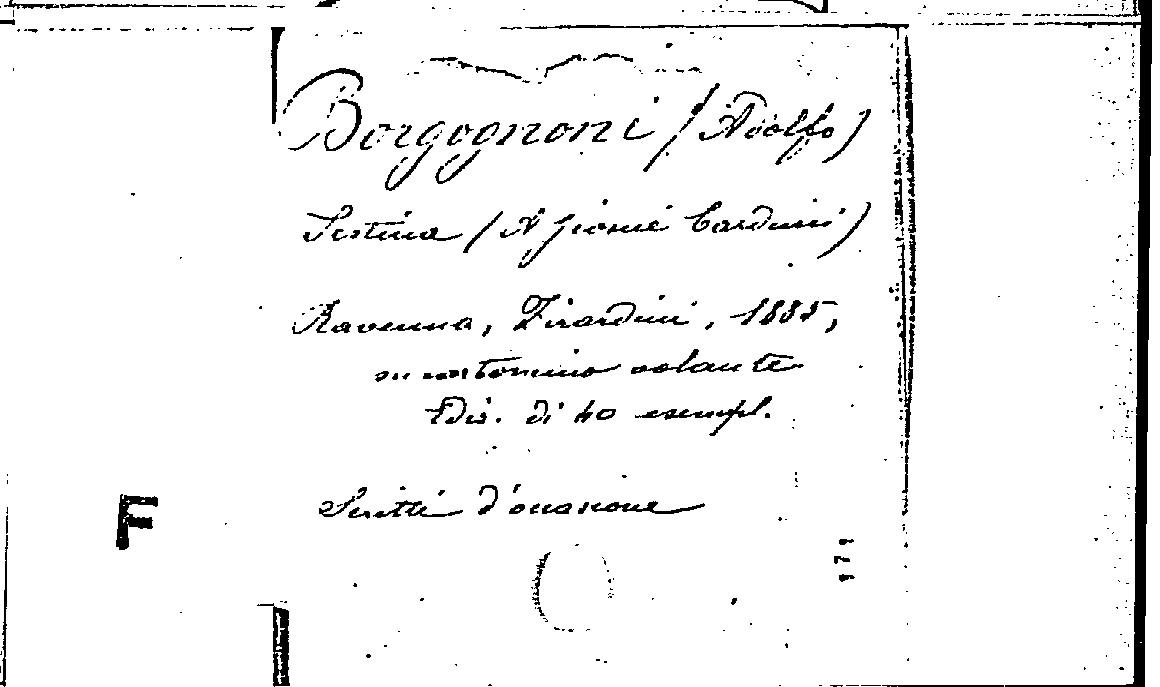 Borgognoni (Adolfo)
Sestina (A Giosuè Carducci)
Ravenna, Zirardini, 1885,
su cartoncino volante
Ediz. di 40 esempl.
Scritti d'occasione
F
171